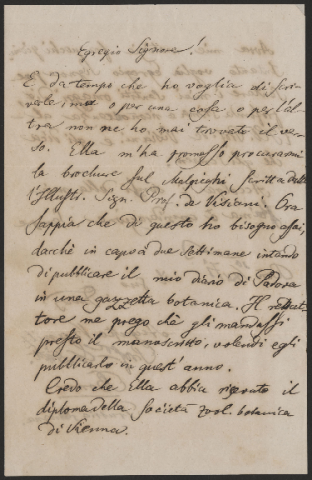 Egregio Signore!
E da tempo che ho voglia di scri-
verle, ma o per una cosa o per l'al-
tra non me ho mai trovato il ver-
so. Ella m'ha promesso procurarmi
la brochure sul Malpieghi scritta dall
Illustr. Sign. Prof. de Visiani. Ora
sappia che di questo ho bisogno assai,
dacchè in capo à due settimane intendo
di pubblicare il mio diario di Padova
in una gazzetta botanica. Il redat-
tore me prego chè gli mandassi
presto il manoscritto, volendo egli
pubblicarlo in quest' anno.
Credo che Ella abbia ricevuto il
diploma della Società zool. botanica
di Vienna.